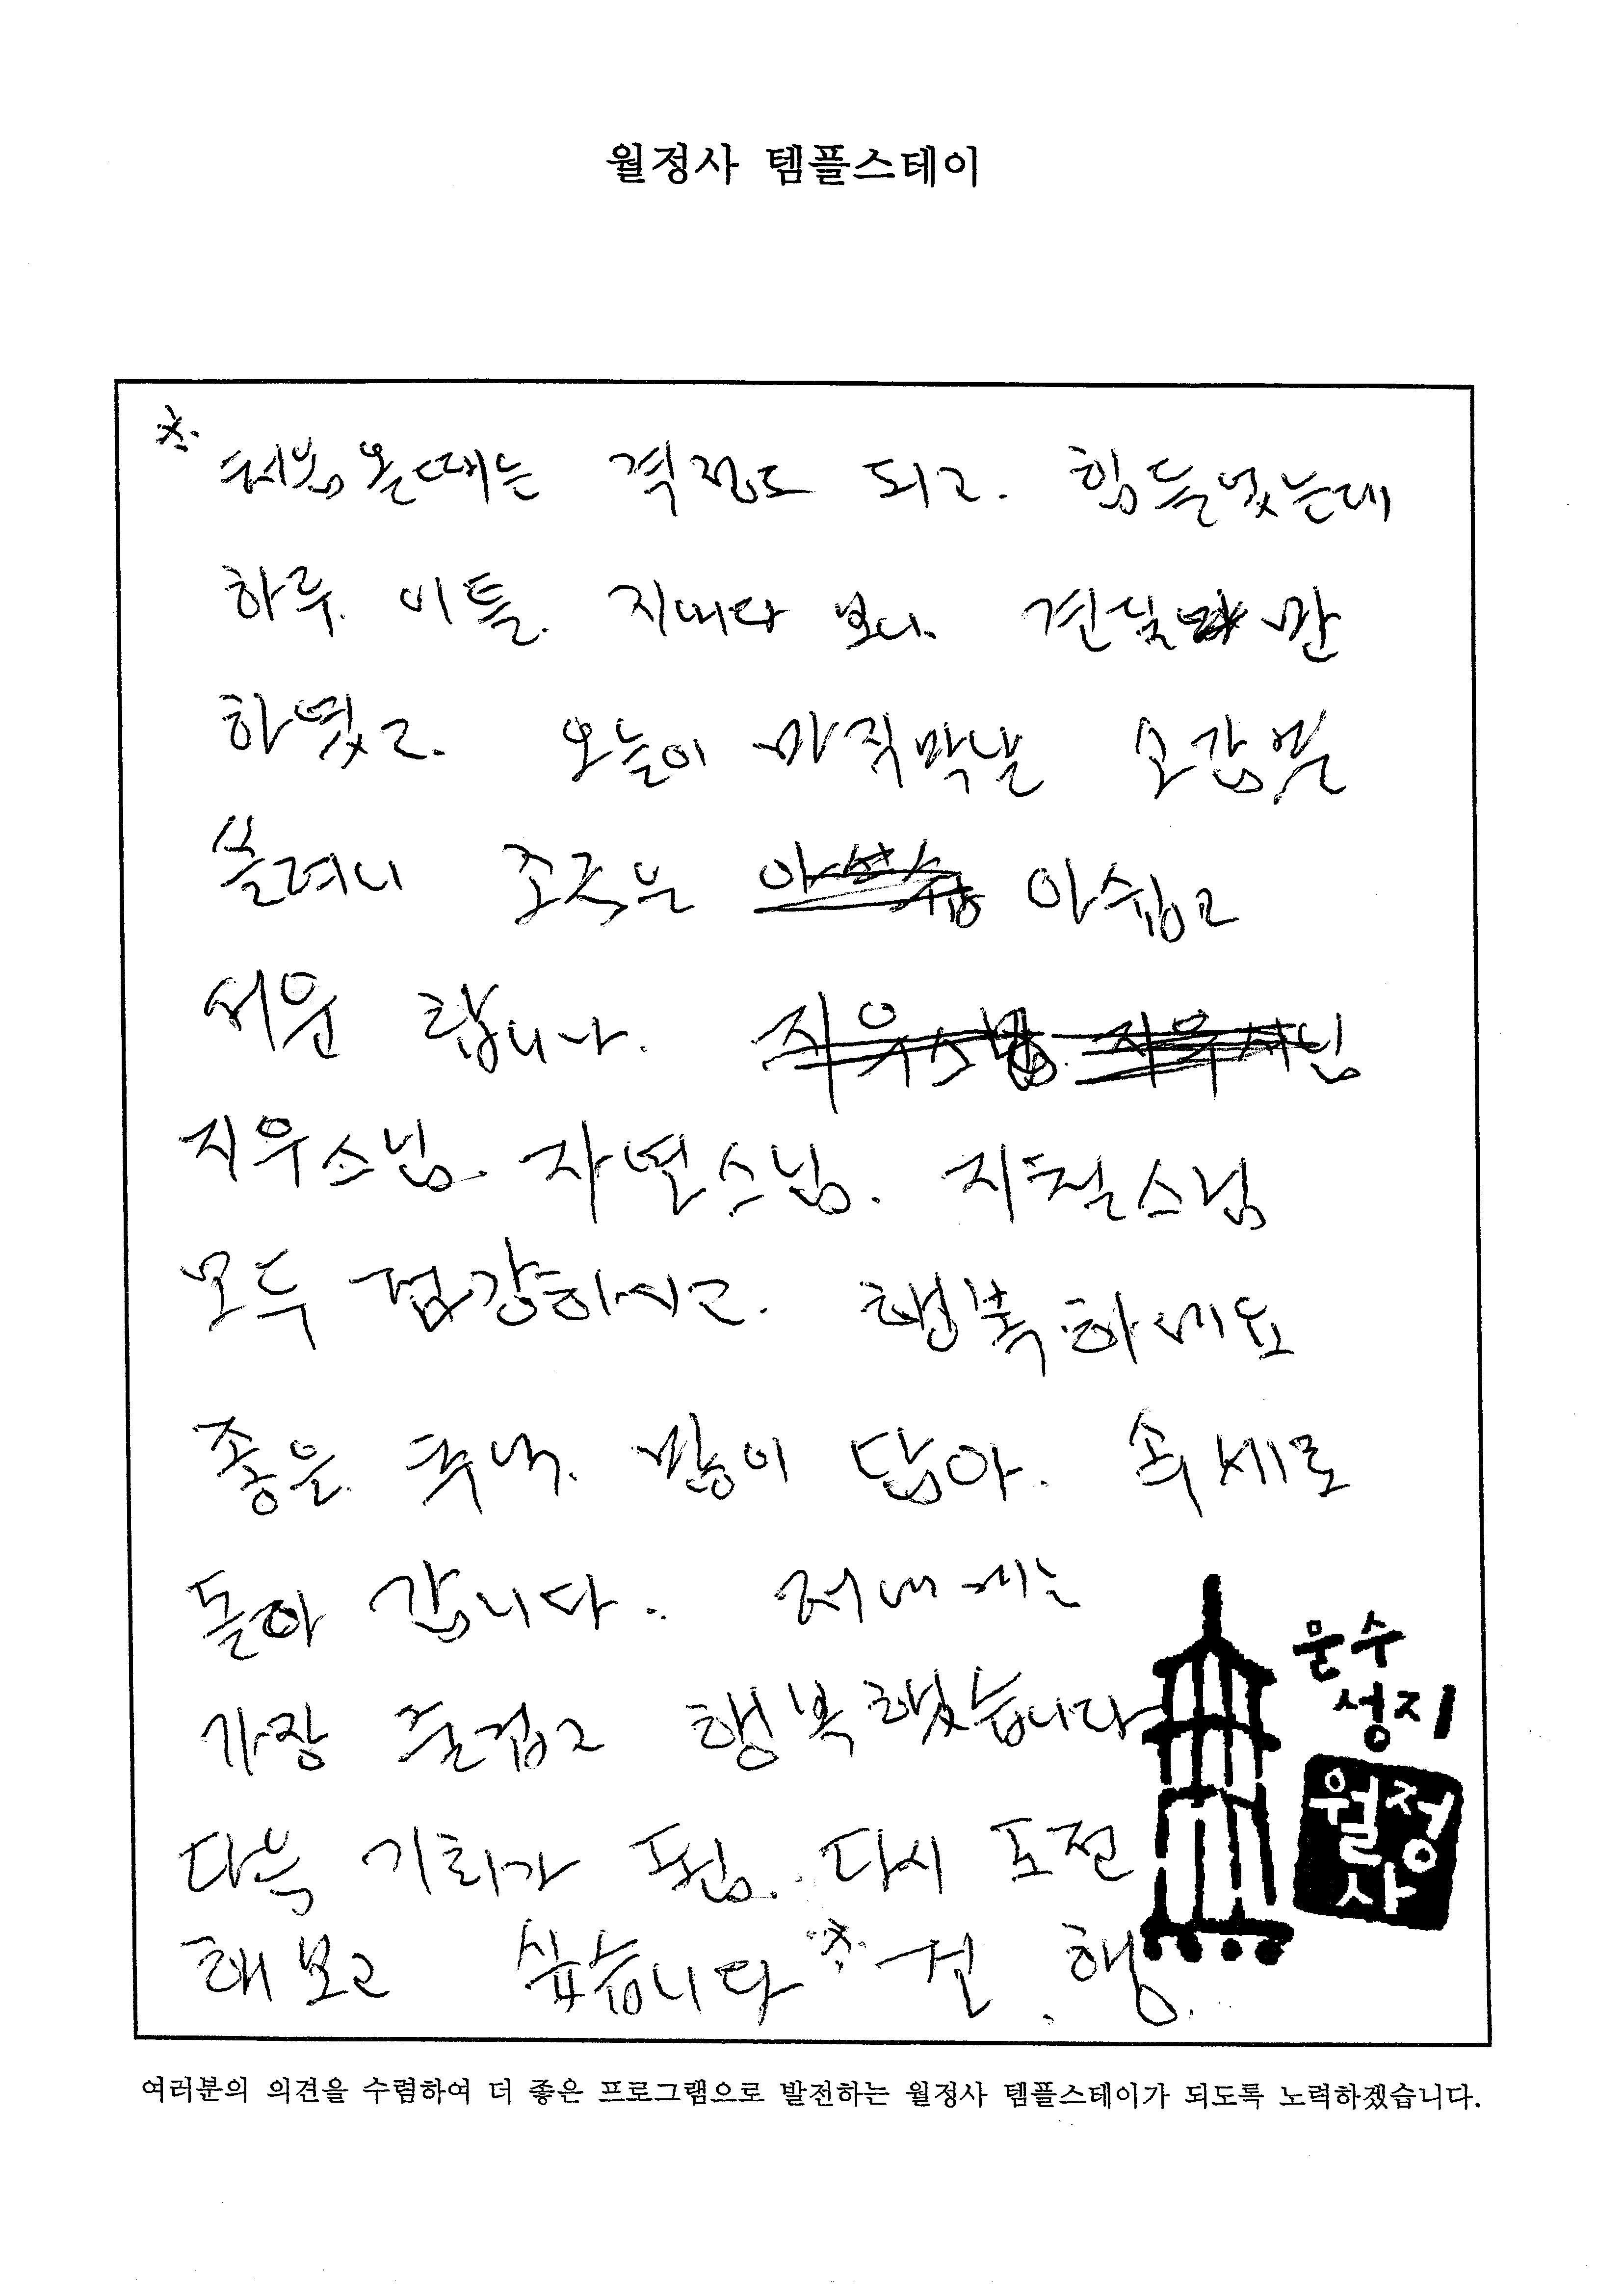 월정사 템플스테이
※ 처음 올때는 걱정도 되고. 힘들었는데
하루. 이틀. 지내다 보니. 견딜만
하였고. 오늘이 마직막날 소감문
쓸려니 조금은 아쉽고
서운 합니다.
지우스님. 자연스님. 지철스님
모두 건강하시고. 행복하세요
좋은 추억. 많이 담아. 속세로
돌아 갑니다. 저에게는
가장 즐겁고 행복했습니다
다음 기회가 됨. 다시 도전
해보고 싶습니다 ※ 건. 행.
문수
성지
월정
사
여러분의 의견을 수렴하여 더 좋은 프로그램으로 발전하는 월정사 템플스테이가 되도록 노력하겠습니다.